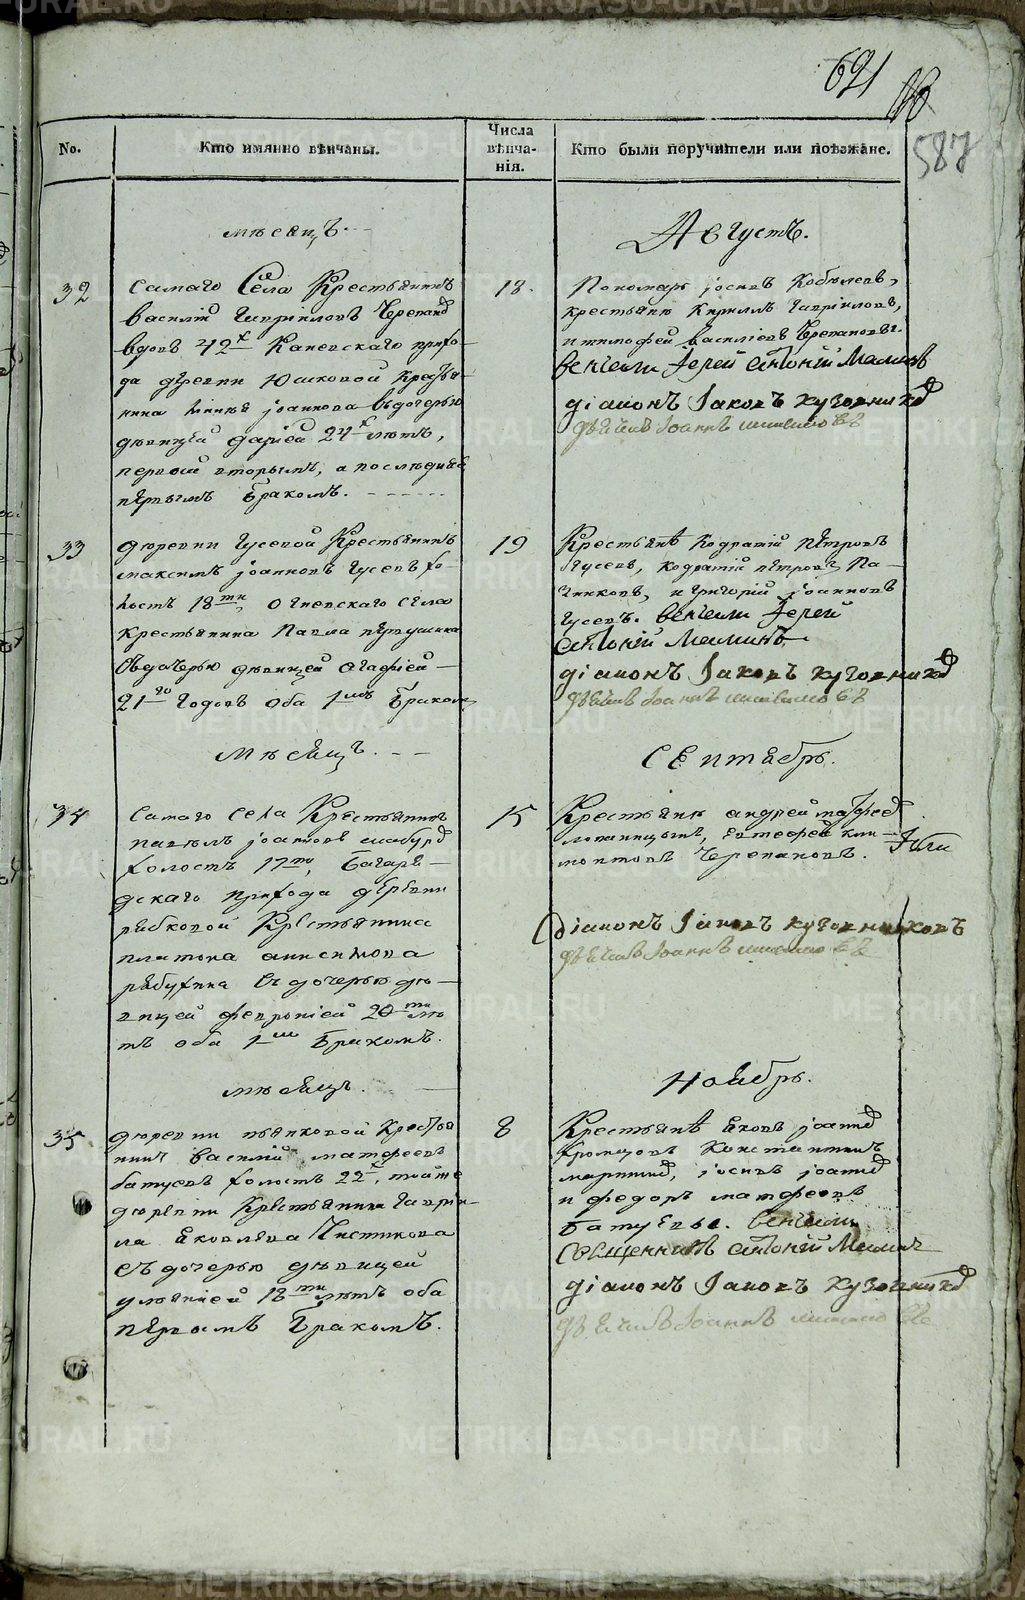 621
587
No.
Кто имянно вѣнчаны.
Числа
вѣнча-
нія.
Кто были поручители или поѣзжане.
мѣсяцъ
Августъ.
32
самаго Села Крестьянинъ
василій Гавриловъ Черепанов
вдовъ 42х Каневскаго прихо-
да деревни Юшковой Крестья-
нина іоаннова съ дочерью
девицей дарьей 24х лѣтъ,
первой вторымъ, а последняя
первымъ бракомъ.
18.
Пономарь іосифъ Кобылевъ,
крестьяне Кириллъ Гавриловъ,
и тимофей василіевъ Черепановы.
венчали Іерей антоній Маминъ
діаконъ Іаковъ кузовников
дьячекъ Іоаннъ
33
деревни Гусевой Крестьянинъ
максимъ іоанновъ Гусевъ хо-
лостъ 18ти, Огневскаго села
крестьянина Павла
съ дочерью девицей агафіей
21го годовъ оба 1мъ бракомъ
19
Крестьяне Кодратій Петровъ
Гусевъ, кодратій петровъ Па-
и григорій іоанновъ
Гусевъ. венчали Іерей
антоній Маминъ
діаконъ Іаковъ кузовников
дьячекъ Іоаннъ
мѣсяцъ
Сентябрь.
34
самаго села Крестьянинъ
павелъ іоанновъ
холостъ 17ти, Багаря-
дскаго прихода деревни
рябковой Крестьянина
платона анисимова
рябухина съ дочерью де-
вицей февроніей 20ти лѣ
тъ оба 1мъ бракомъ.
15
Крестьяне андрей матфеев
евтефей
Черепановъ.
діаконъ Іаковъ кузовниковъ
дьячекъ Іоаннъ
мѣсяцъ
Ноябрь.
35
деревни пьянковой Крестья
нинъ василій матфеевъ
батуевъ холостъ 22х, тойже
деревни Крестьянина Гаври-
ла Яковлева Чистякова
съ дочерью девицей
уліяніей 18ти лѣтъ оба
первымъ бракомъ.
8
Крестьяне Яковъ іоаннов
Константинъ
іосифъ іоаннов
и федоръ матфеевъ
батуевы. венчали
Священникъ антоній Маминъ
діаконъ Іаковъ кузовников
дьячекъ Іоаннъ
METRIKI.GASO-URAL.RU